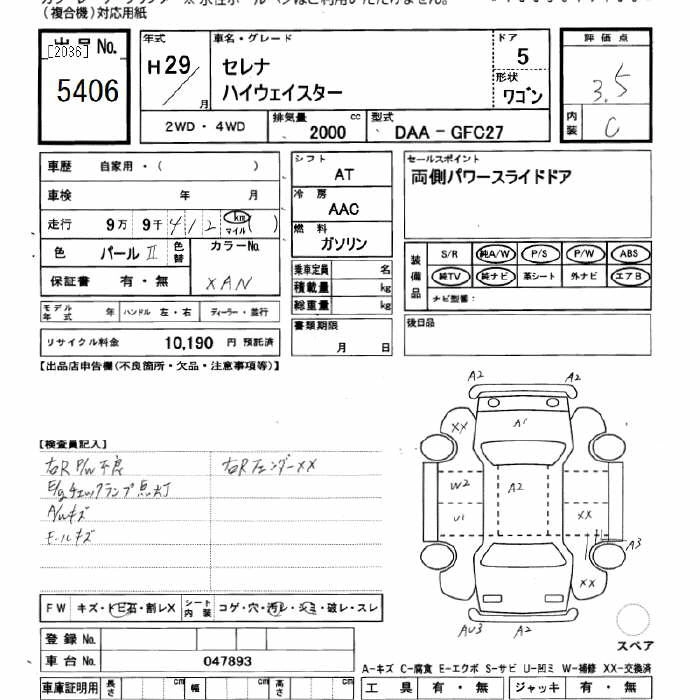 (複合機)対応用紙
出品No.
[2036]
5406
年式
H29
月
車名・グレード
セレナ
ハイウェイスター
ドア
5
形状
ワゴン
2WD・4WD
排気量
cc
2000
型式
DAA-GFC27
評価点
3.5
内装
C
車歴 自家用・( )
車検 年 月
走行 9万 9千 4 1 2 km マイル ( )
色 パールⅡ 色替 カラーNo.
保証書 有・無 XAN
モデル年式 年 ハンドル 左・右 ディーラー・並行
リサイクル料金 10,190 円 預託済
シフト
AT
冷房
AAC
燃料
ガソリン
乗車定員 名
積載量 kg
総重量 kg
書類期限
月 日
セールスポイント
両側パワースライドドア
装備品
S/R 純A/W P/S P/W ABS
純TV 純ナビ 革シート 外ナビ エアB
ナビ型番:
後日品
【出品店申告欄(不良箇所・欠品・注意事項等)】
【検査員記入】
右R P/W不良 右Rフェンダーxx
E/gチェックランプ点灯
A/Wキズ
モールキズ
FW キズ・トビ石・割レX シート内装 コゲ・穴・汚レ・シミ・破レ・スレ
登録No.
車台No. 047893
車庫証明用 長さ cm 幅 cm 高さ cm
A2 A2
XX A1
W2 A2
U1 XX
A3
XX
AU3 A2
スペア
A-キズ C-腐食 E-エクボ S-サビ U-凹ミ W-補修 XX-交換済
工具 有・無 ジャッキ 有・無